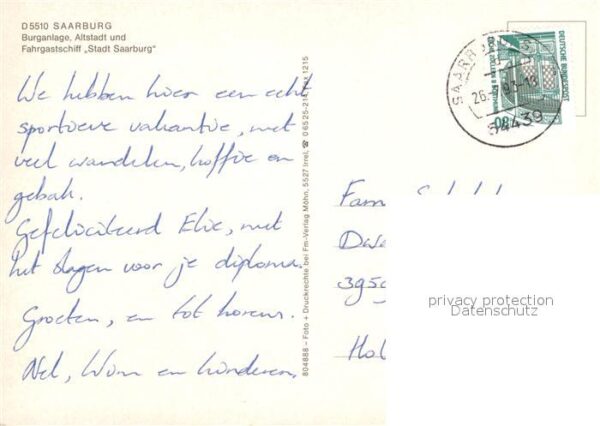 D5510 SAARBURG
Burganlage, Altstadt und
Fahrgastschiff „Stadt Saarburg"
We hebben hier een echt
sportieve vakantie, met
veel wandelen, koffie en
gebak.
Gefeliciteerd Elie, met
het slagen voor je diploma.
Groeten, en tot horens.
Nel, Wim en kinderen.
804888 – Foto + Druckrechte bei Fm-Verlag Möhn, 5527 Irrel, ☎ 06525-215, Fax 1215
DEUTSCHE BUNDESPOST
080
SAARB
26.-7.9
54439
Fam
395
Hol
privacy protection
Datenschutz